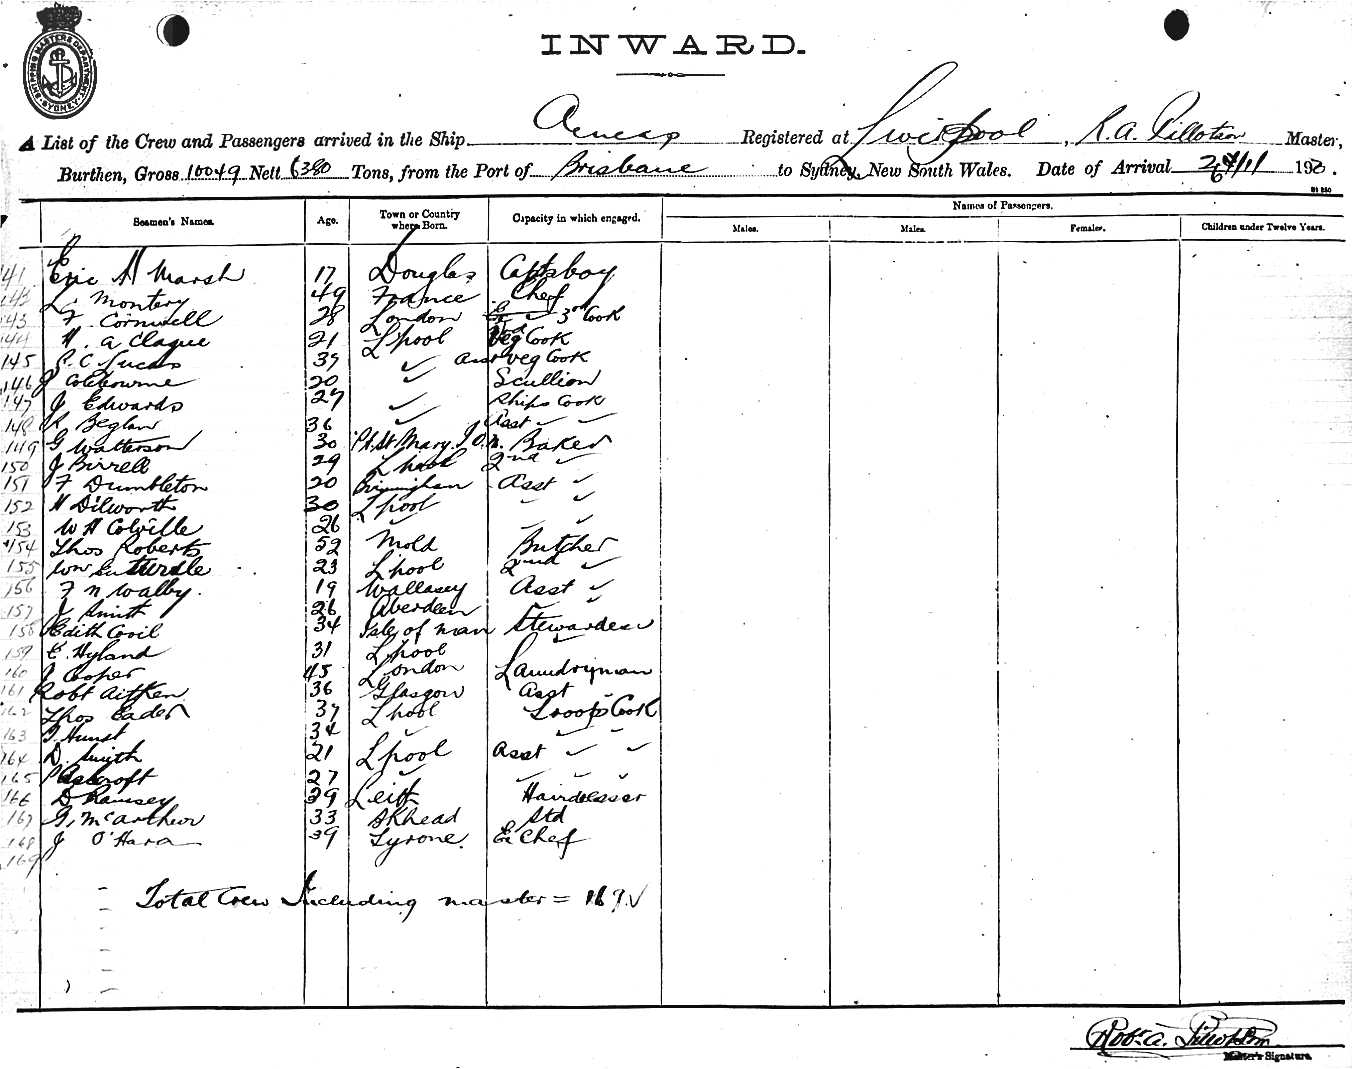 SHIPPING MASTERS DEPARTMENT. SYDNEY.
INWARD.
A List of the Crew and Passengers arrived in the Ship Aeneas Registered at Liverpool, R. A. Tillotson Master,
Burthen, Gross 10049 Nett 6380 Tons, from the Port of Brisbane to Sydney, New South Wales. Date of Arrival 193 .
Seamen's Names. Age. Town or Country where Born. Capacity in which engaged. Names of Passengers.
Males. Males. Females. Children under Twelve Years.
141 Eric H Marsh 17 Douglas Capts boy
L. Montery 49 France Chef
143 F. Cornwell 28 London 3rd Cook
144 H. A Clague 21 L'pool Veg Cook
145 C Lucas 39 ✓ Asst Veg Cook
146 J Colebourne 20 ✓ Scullion
147 J Edwards 27 ✓ Ships Cook
148 R Beglan 36 ✓ Asst ✓ ✓
149 G Watterson 30 Pt. St Mary. I.O.M. Baker
150 J Birrell 29 L'pool 2nd ✓
151 F Dumbleton 20 Birmingham Asst ✓
152 H Dilworth 30 L'pool ✓ ✓
153 W H Colville 26 ✓ ✓ ✓
154 Thos Roberts 52 Mold Butcher
155 Wm 23 L'pool 2nd ✓
156 F N Walby. 19 Wallasey Asst ✓
157 J Smith 26 Aberdeen ✓
158 Edith Covil 34 Isle of Man Stewardess
159 E. Hyland 31 L'pool ✓
160 J Cooper 45 London Laundryman
161 Robt Aitken 36 Glasgow Asst
162 Thos Eader 37 L'pool Troops Cook
163 T. Hurst 34 ✓ ✓ ✓
164 D. Smith 21 L'pool Asst ✓ ✓
165 P Ashcroft 27 ✓ ✓ ✓ ✓
166 D Ramsey 29 Leith Hairdresser
167 G. McArthur 33 B'khead Std
168 J O'Hara 39 Tyrone. Ex Chef
169
Total Crew Including master = 169 ✓
Robt. A. Tillotson
Master's Signature.